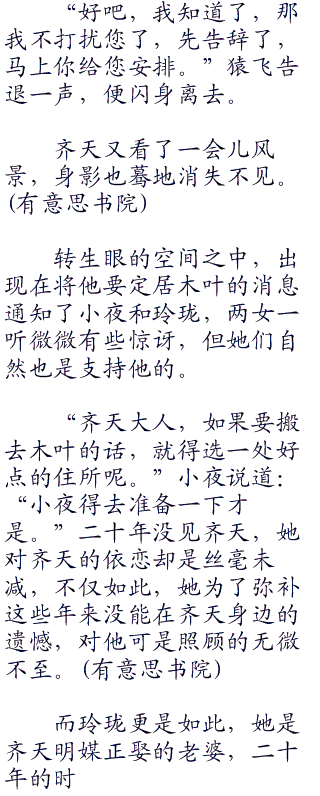 “好吧，我知道了，那
我不打扰您了，先告辞了，
马上你给您安排。”猿飞告
退一声，便闪身离去。
齐天又看了一会儿风
景，身影也蓦地消失不见。
(有意思书院)
转生眼的空间之中，出
现在将他要定居木叶的消息
通知了小夜和玲珑，两女一
听微微有些惊讶，但她们自
然也是支持他的。
“齐天大人，如果要搬
去木叶的话，就得选一处好
点的住所呢。”小夜说道：
“小夜得去准备一下才
是。”二十年没见齐天，她
对齐天的依恋却是丝毫未
减，不仅如此，她为了弥补
这些年来没能在齐天身边的
遗憾，对他可是照顾的无微
不至。(有意思书院)
而玲珑更是如此，她是
齐天明媒正娶的老婆，二十
年的时